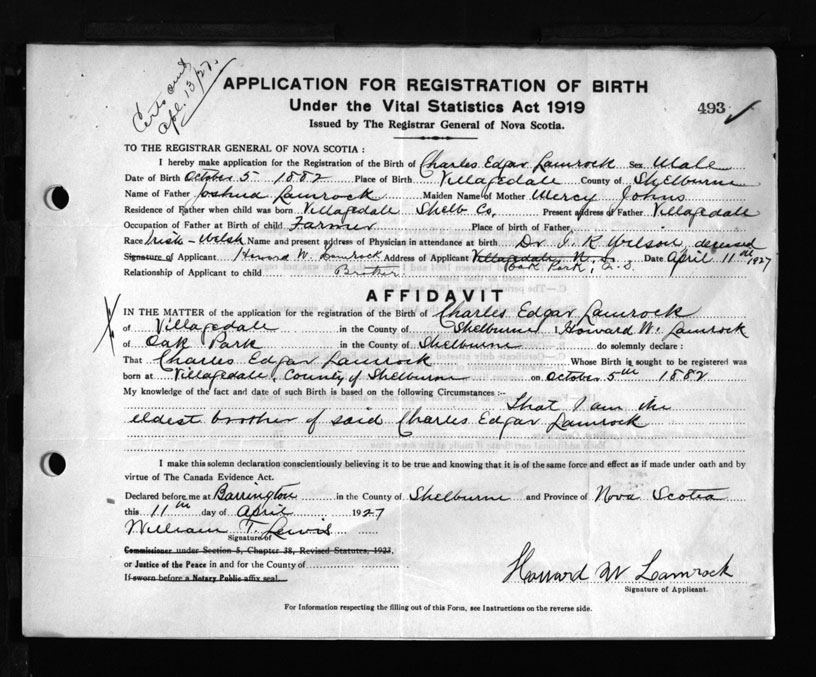 Certs. sent
Apl. 13/27.
APPLICATION FOR REGISTRATION OF BIRTH
Under the Vital Statistics Act 1919
493 ✓
Issued by The Registrar General of Nova Scotia.
TO THE REGISTRAR GENERAL OF NOVA SCOTIA :
I hereby make application for the Registration of the Birth of Charles Edgar Lamrock Sex Male
Date of Birth October 5 1882 Place of Birth Villagedale County of Shelburne
Name of Father Joshua Lamrock Maiden Name of Mother Mercy Johns
Residence of Father when child was born Villagedale Shelb Co. Present address of Father Villagedale
Occupation of Father at Birth of child Farmer Place of birth of Father
Race Irish - Welsh Name and present address of Physician in attendance at birth Dr. I. K. Wilson, deceased
Signature of Applicant Howard W. Lamrock Address of Applicant Villagedale, N. S. Oak Park, N. S. Date April 11th 1927
Relationship of Applicant to child Brother
AFFIDAVIT
IN THE MATTER of the application for the registration of the Birth of Charles Edgar Lamrock
of Villagedale in the County of Shelburne I Howard W. Lamrock
of Oak Park in the County of Shelburne do solemnly declare :
That Charles Edgar Lamrock Whose Birth is sought to be registered was
born at Villagedale, County of Shelburne on October 5th 1882
My knowledge of the fact and date of such Birth is based on the following Circumstances :-
That I am the
eldest brother of said Charles Edgar Lamrock
I make this solemn declaration conscientiously believing it to be true and knowing that it is of the same force and effect as if made under oath and by
virtue of The Canada Evidence Act.
Declared before me at Barrington in the County of Shelburne and Province of Nova Scotia
this 11th day of April 1927
William T. Lewis
Signature of
Commissioner under Section 5, Chapter 38, Revised Statutes, 1923,
or Justice of the Peace in and for the County of
If sworn before a Notary Public affix seal.
Howard W Lamrock
Signature of Applicant.
For Information respecting the filling out of this Form, see Instructions on the reverse side.